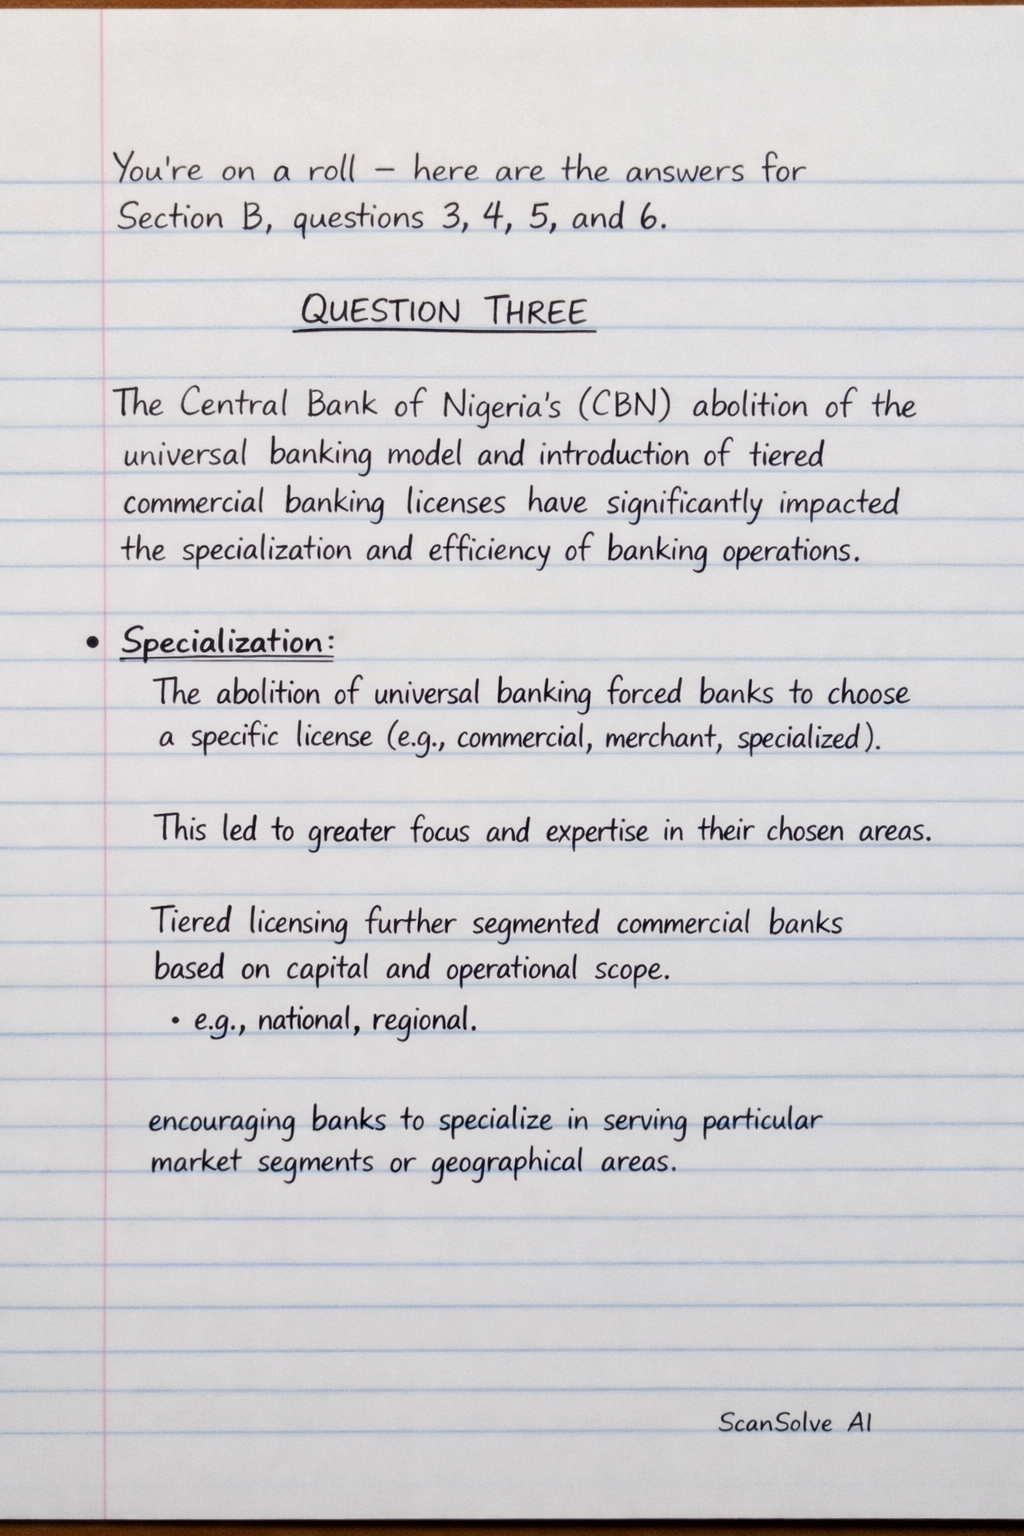 You're on a roll – here are the answers for
Section B, questions 3, 4, 5, and 6.
QUESTION THREE
The Central Bank of Nigeria's (CBN) abolition of the
universal banking model and introduction of tiered
commercial banking licenses have significantly impacted
the specialization and efficiency of banking operations.
• Specialization:
The abolition of universal banking forced banks to choose
a specific license (e.g., commercial, merchant, specialized).
This led to greater focus and expertise in their chosen areas.
Tiered licensing further segmented commercial banks
based on capital and operational scope.
• e.g., national, regional.
encouraging banks to specialize in serving particular
market segments or geographical areas.
ScanSolve AI